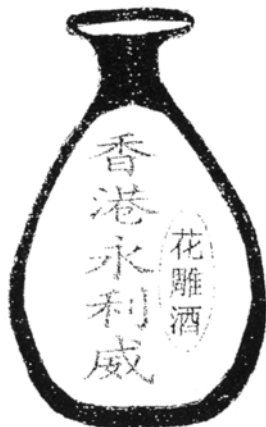 香港永利威
花雕酒